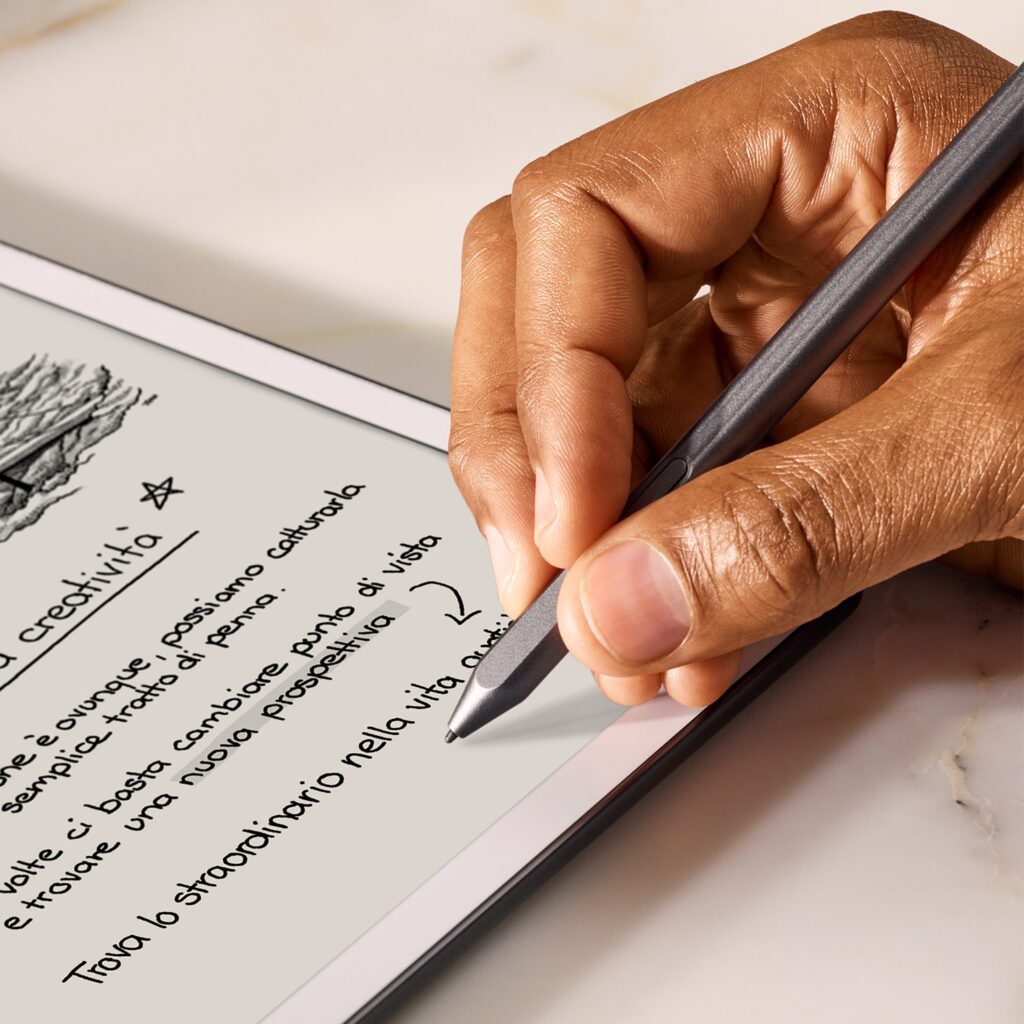 creatività
è ovunque, possiamo catturarla
semplice tratto di penna.
volte ci basta cambiare punto di vista
e trovare una nuova prospettiva
Trova lo straordinario nella vita